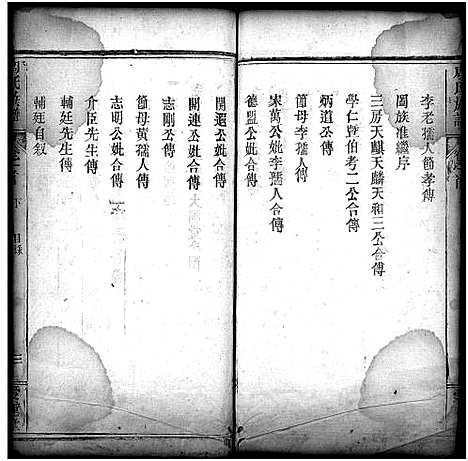 李老孺人節孝傳
闔族准繼序
三房天麒天麟天和三公合傳
學仁暨伯考二公合傳
炳道公傳
節母李孺人傳
宋萬公妣李孺人合傳
德盟公妣合傳
開選公妣合傳
開連公妣合傳
志剛公傳
節母黃孺人傳
志明公妣合傳
介臣先生傳
輔廷先生傳
輔廷自叙
氏族譜
下 目錄
三